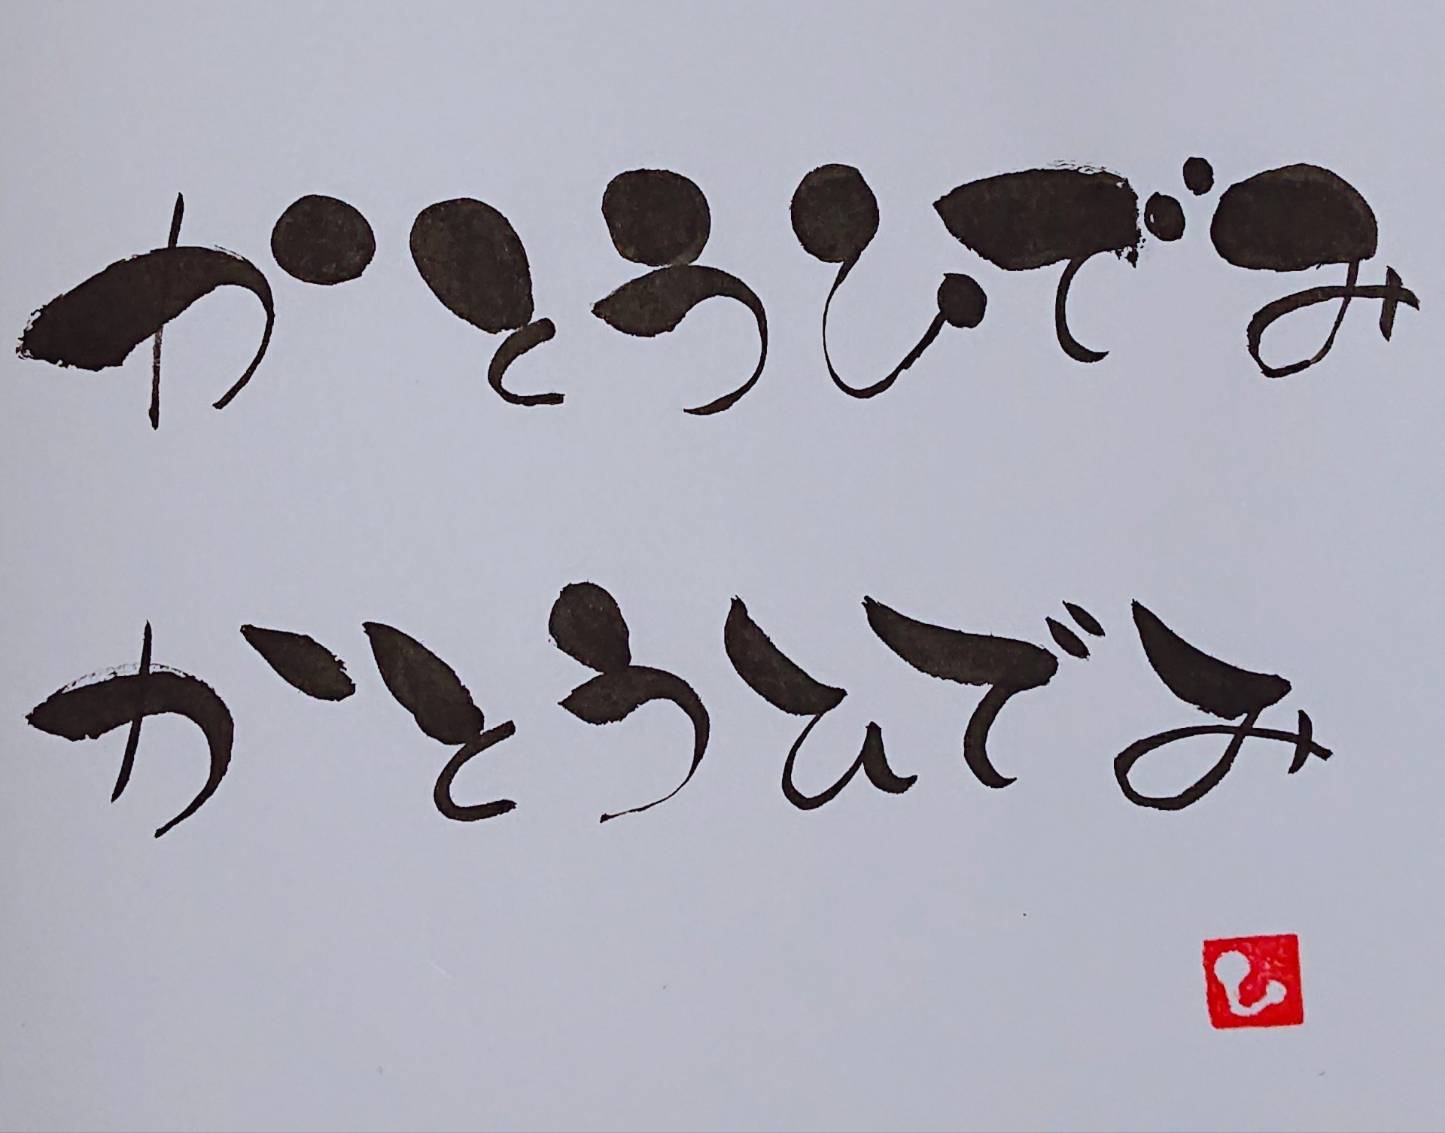 かとうひでみ
かとうひでみ
ひ